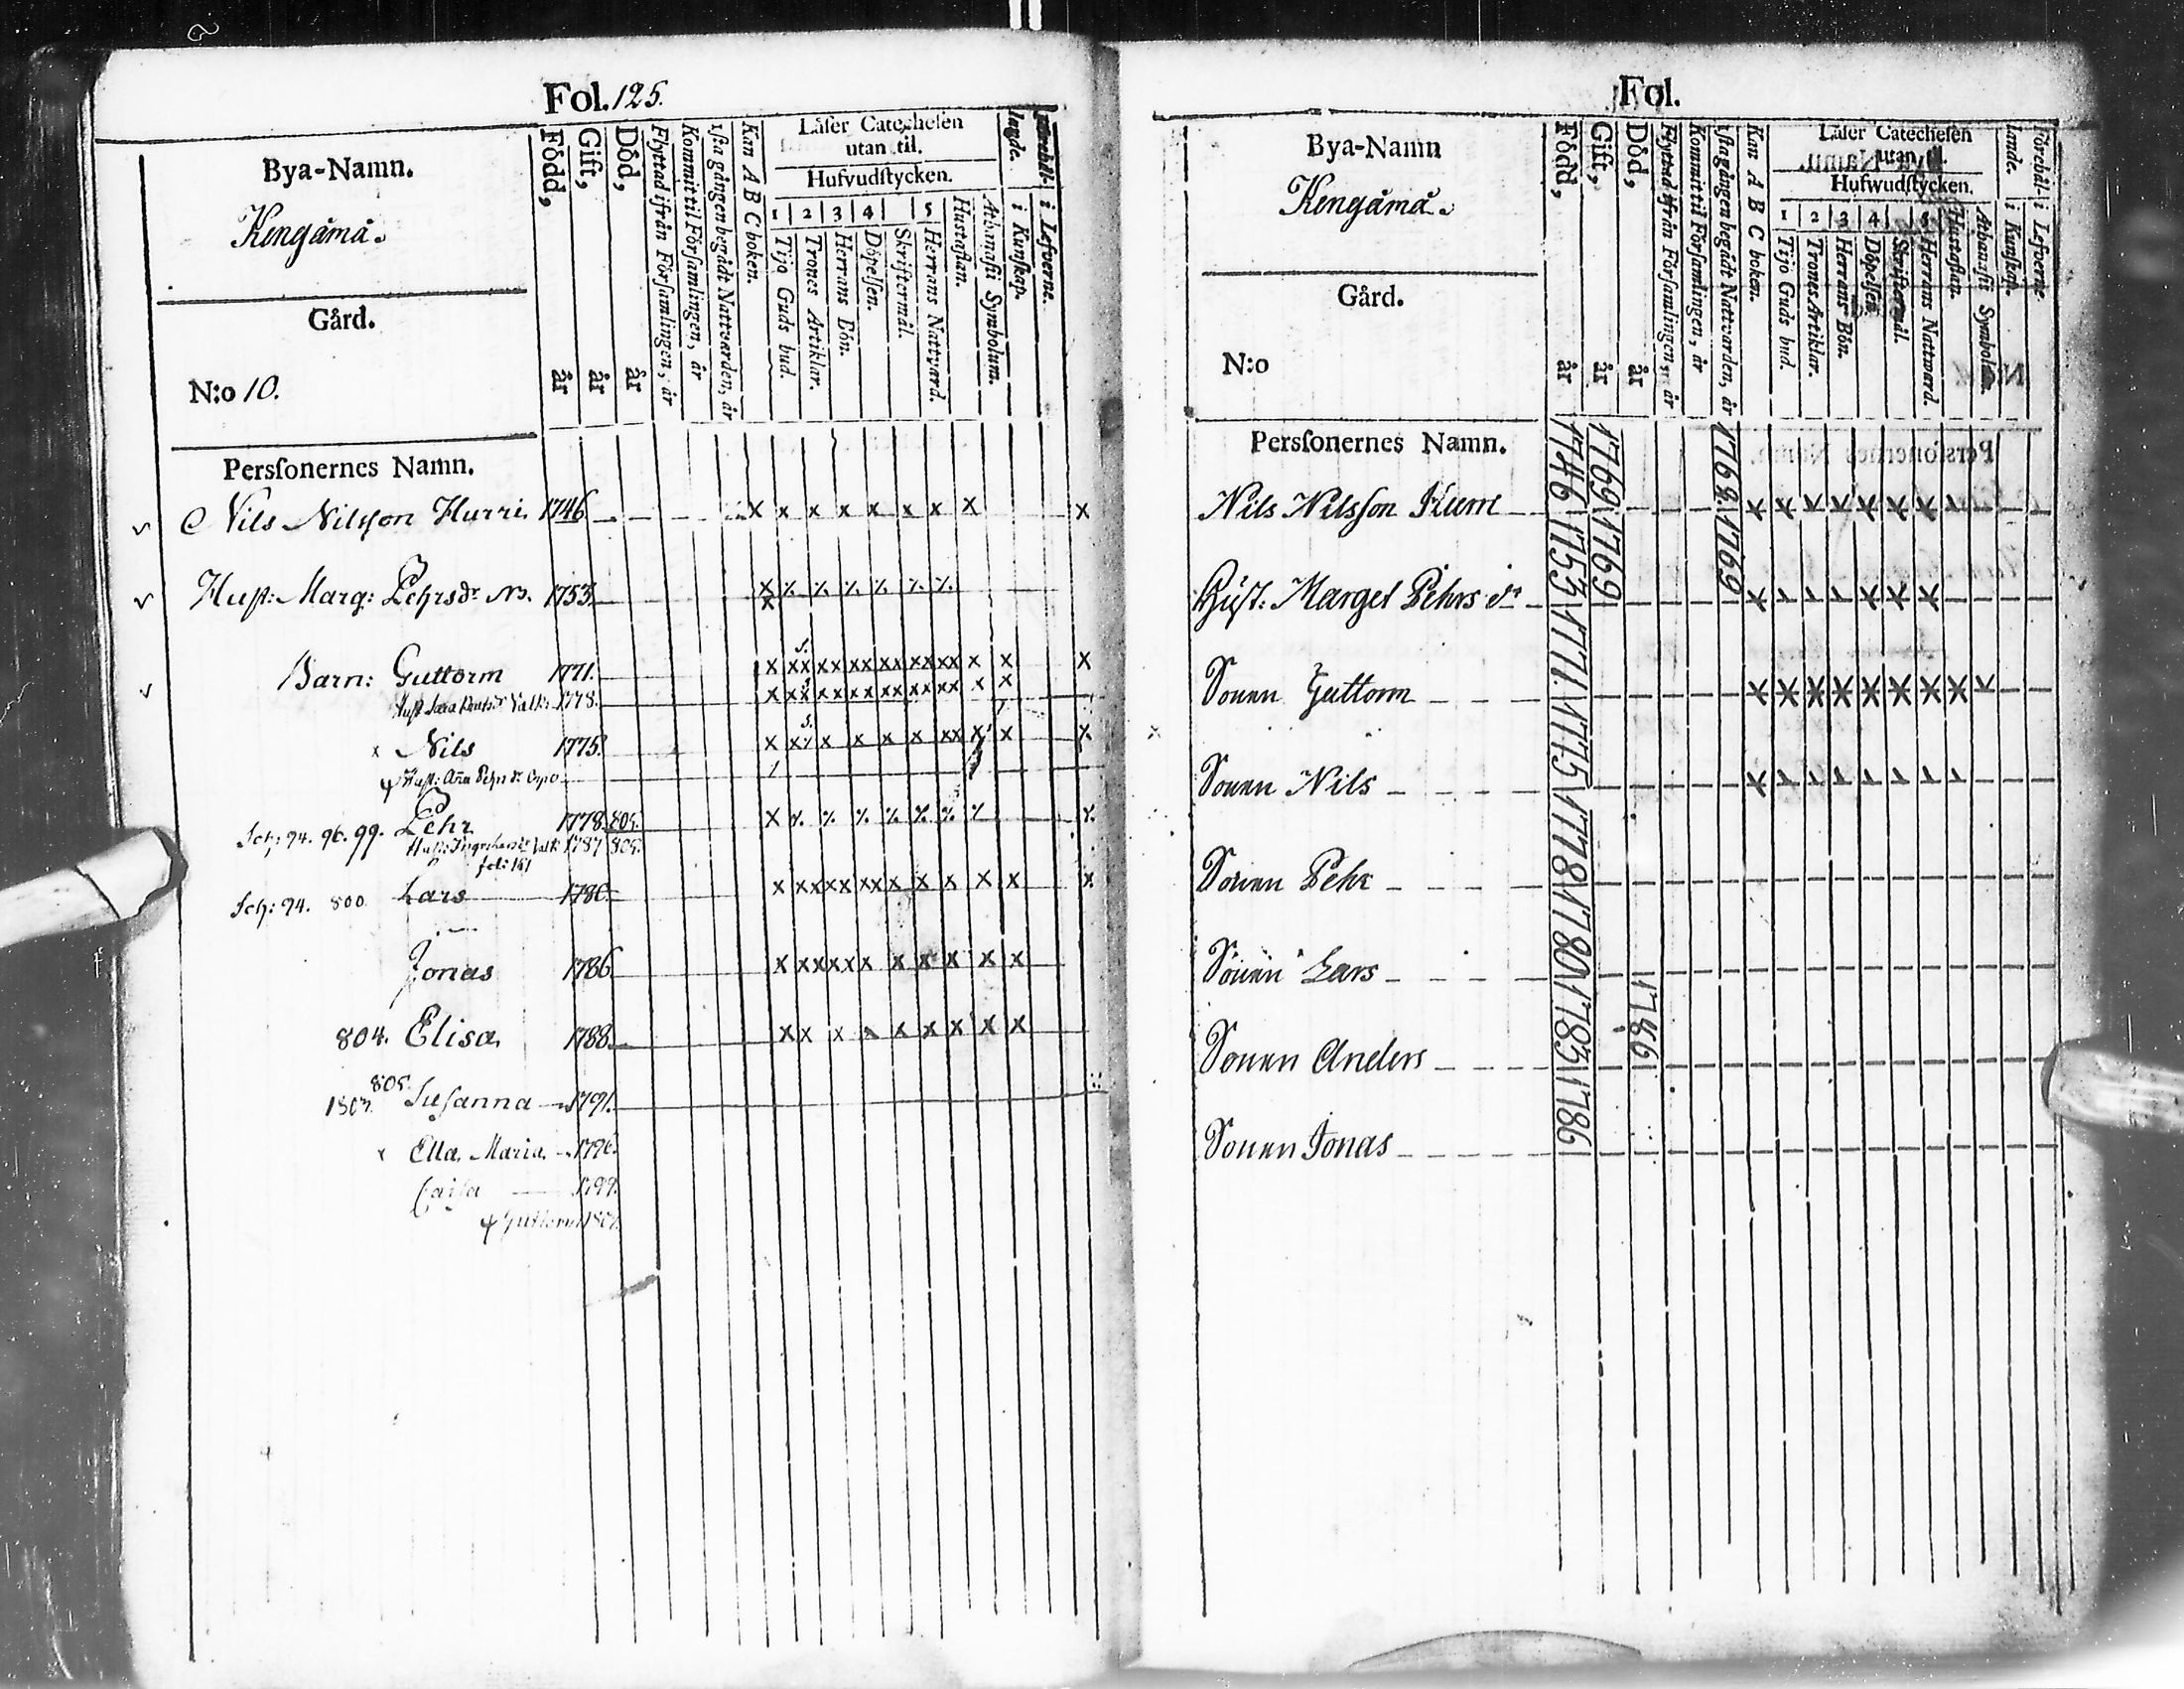 Fol. 125.
Bya-Namn.
Kengåmå.
Gård.
N:o 10.
Född, år
Gift, år
Död, år
Flyttad ifrån Församlingen, år
Kommit til Församlingen, år
1sta gången begådt Nattvarden, år
Kan A B C boken.
Läser Catechesen
utan til.
Hufvudstycken.
1 2 3 4 5
Tijo Guds bud.
Trones Artiklar.
Herrans Bön.
Döpelsen.
Skriftermål.
Herrans Nattvard.
Hustaflan.
Athanasii Symbolum.
i Kunskap.
i Lefverne.
Personernes Namn.
Nils Nilsson Hurri. 1746
Hust: Marg: Pehrsdr 1753.
Barn: Guttorm 1771.
Hust Sara 1778.
x Nils 1775.
Hust: Aña Pehrs dr
Sch: 94. 96. 99. Pehr 1778. 805.
1787 805.
Sch: 94. 800. Lars 1780.
Jonas 1786
804. Elisa. 1788.
805.
Susanna 1791.
x Ella Maria 1796.
Caisa 1799.
Guttorm
Fol.
Bya-Namn
Kengåmå.
Gård.
N:o
Född, år
Gift, år
Död, år.
Flyttad ifrån Församlingen, år
Kommit til Församlingen, år
1sta gången begådt Nattvarden, år
Kan A B C boken.
Läser Catechesen
utan til.
Hufwudstycken.
1 2 3 4 5
Tijo Guds bud.
Trones Artiklar.
Herrans Bön.
Döpelsen.
Skriftermål.
Herrans Nattvard.
Hustaflan.
Athanasii Symbolum.
Förehållande.
i Kunskap.
i Lefverne.
Personernes Namn.
Nils Nilsson 1746 1769 1762
Hust: Marget Pehrs dr 1753 1769 1769
Sonen Guttorm 1771
Sonen Nils 1775
Sonen Pehr 1778
Sonen Lars 1780
Sonen Anders 1783 1786
Sonen Jonas 1786